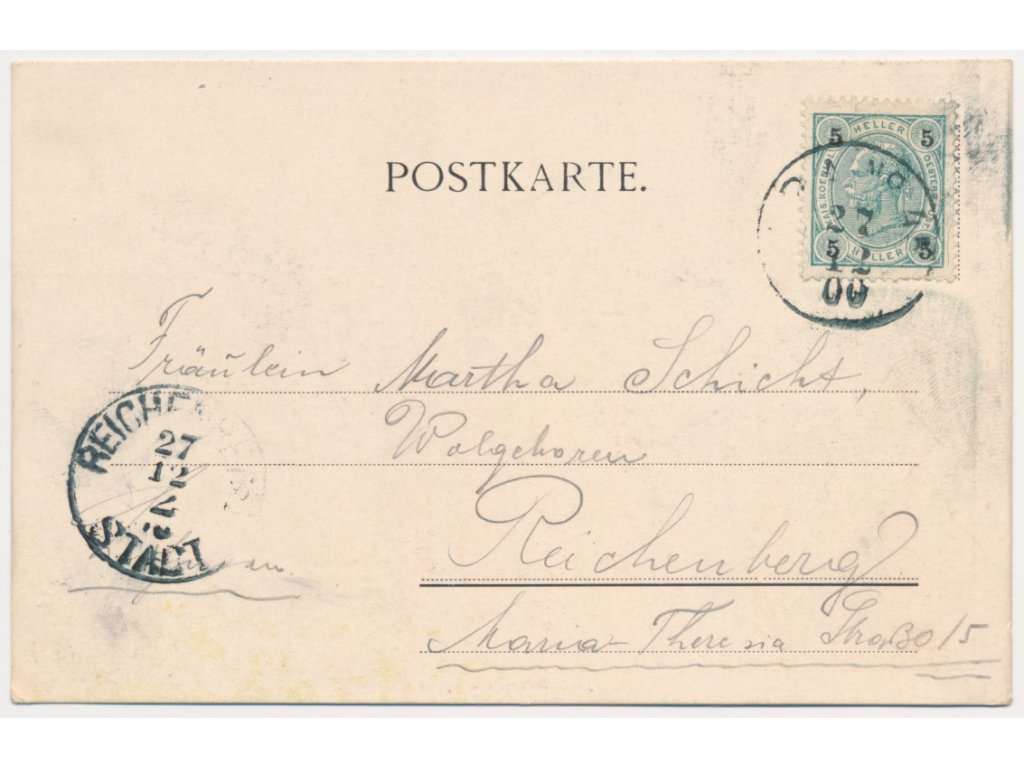 POSTKARTE.
5 HELLER 5
27
12
00
5 HELLER 5
Fräulein Martha Schicht,
Wolgeboren
Reichenberg
Maria-Theresia Straße/5
27
12
STADT